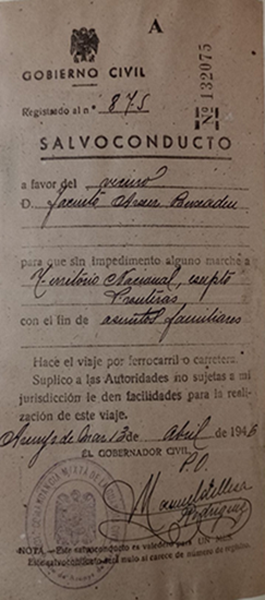 A
Nº 132075
GOBIERNO CIVIL
Registrado al nº 875
SALVOCONDUCTO
a favor del vecino
D. Jacinto
para que sin impedimento alguno marche a
Territorio Nacional, excepto
Fronteras
con el fin de asuntos familiares
Hace el viaje por ferrocarril o carretera.
Suplico a las Autoridades no sujetas a mi
jurisdicción le den facilidades para la reali-
zación de este viaje.
Arenys de Mar 13 de Abril de 1946
EL GOBERNADOR CIVIL
P.O.
Manuel
Rodríguez
NOTA.—Este salvoconducto es valedero para UN MES
Este salvoconducto será nulo si carece de número de registro.